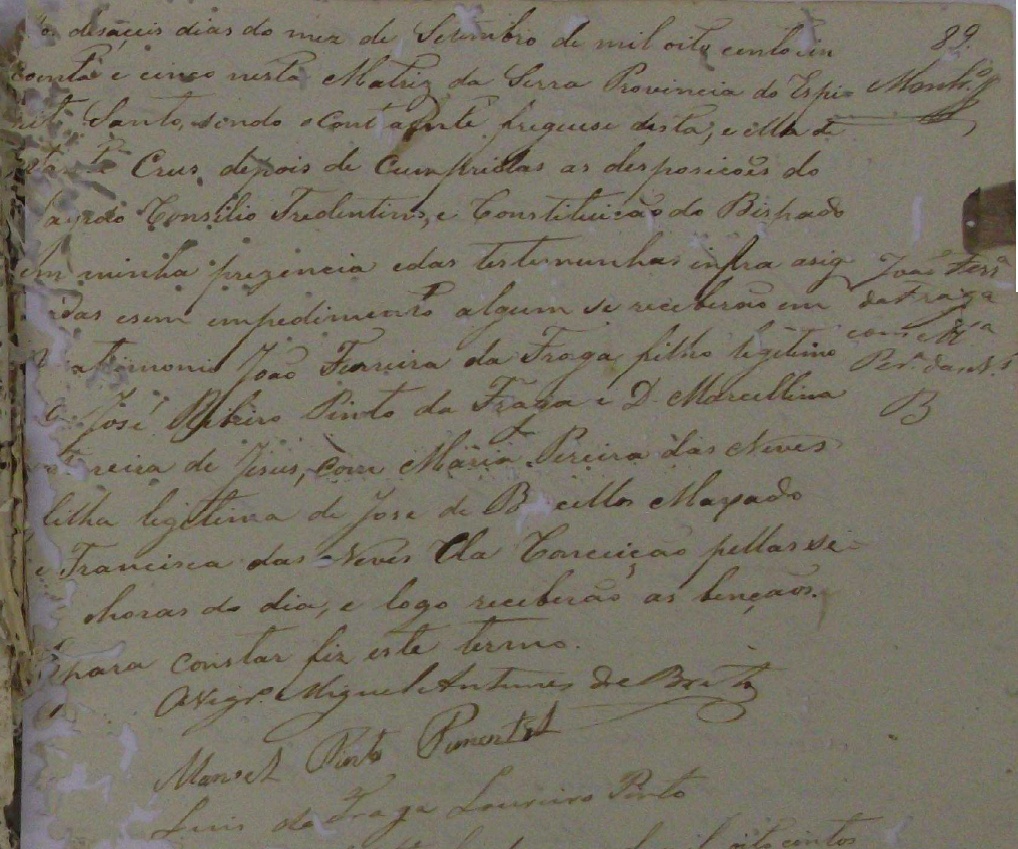 89.
desaçeis dias do mez de Setembro de mil oito cento cin
coenta e cinco nesta Matriz da Serra Provincia do Espi=
Santo, sendo o Contraente freguese desta, e ella de
Crus, depois de Cumpridas as desposicões do
Sagrado Consilio Tredentino, e Constituicão do Bispado
em minha prezencia e das testemunhas infra asig
das e sem empedimento algum se receberão em
Matrimonio João Ferreira da Fraga filho legitimo
de José Ribeiro Pinto da Fraga e D. Marcellina
Pereira de Jesus, com Maria Pereira das Neves
filha legitima de José de B cellos Maxado
e Francisca das Neves da Conceição pellas se
horas do dia, e logo receberão as bençaos.
E para constar fiz este termo.
O Vigr.º Miguel Antunes de Brito
Manoel Pinto Pimentel
Luis da Fraga Loureiro Pinto
oito centos
João Ferrª
da Fraga
com Mª
Perª das N.s
B